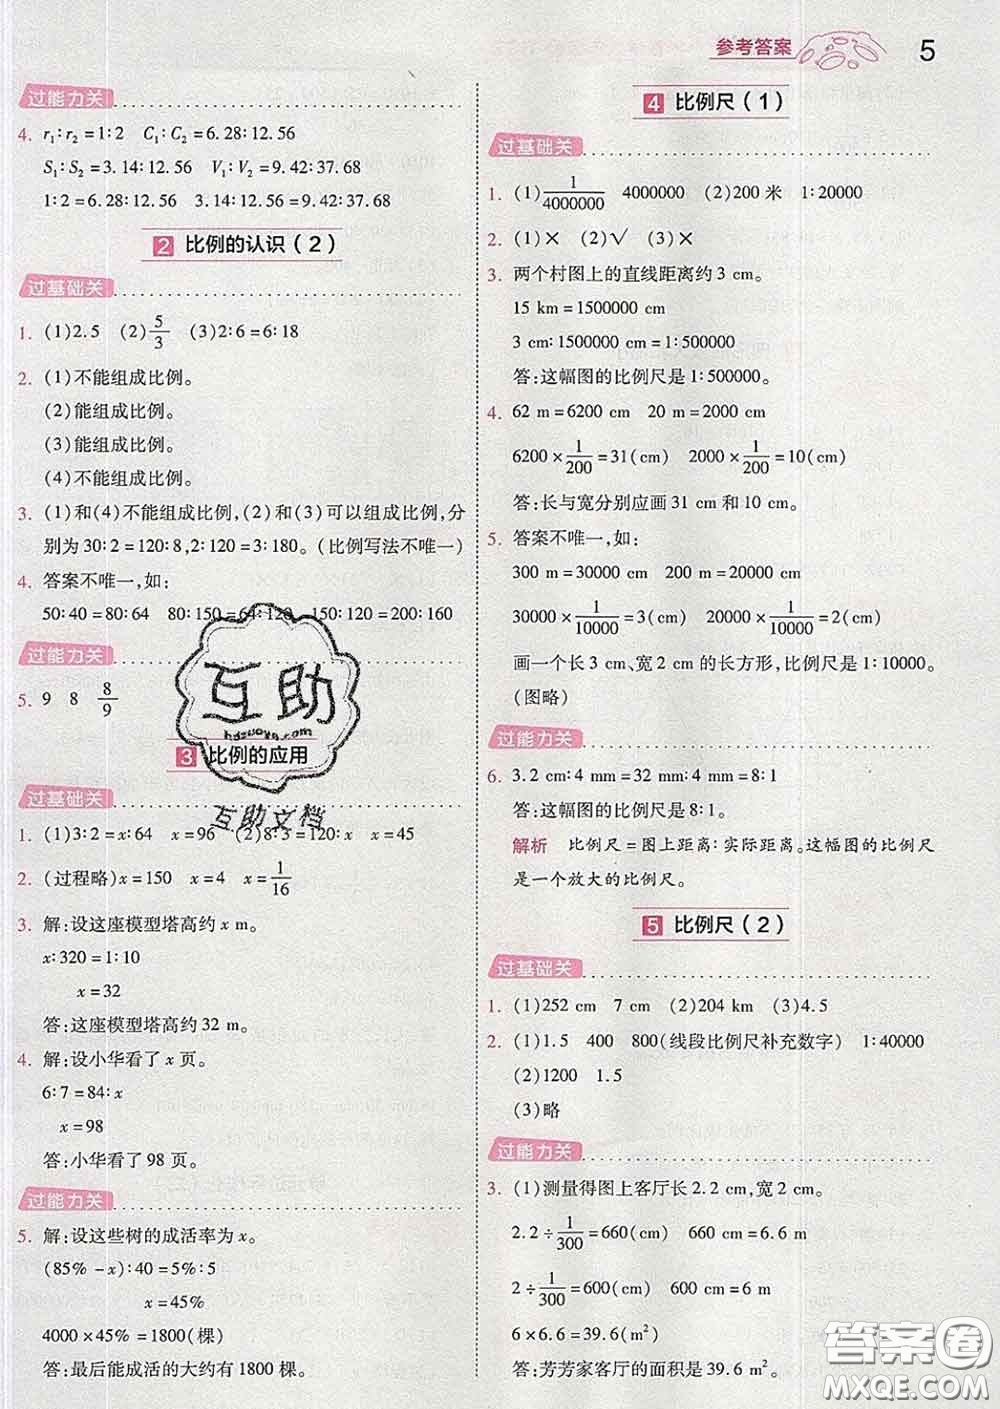 参考答案
5
过能力关
4. r₁∶r₂=1∶2 C₁∶C₂=6.28∶12.56
S₁∶S₂=3.14∶12.56 V₁∶V₂=9.42∶37.68
1∶2=6.28∶12.56 3.14∶12.56=9.42∶37.68
2 比例的认识(2)
过基础关
1. (1)2.5 (2)5/3 (3)2∶6=6∶18
2. (1)不能组成比例。
(2)能组成比例。
(3)能组成比例。
(4)不能组成比例。
3. (1)和(4)不能组成比例,(2)和(3)可以组成比例,分
别为30∶2=120∶8,2∶120=3∶180。(比例写法不唯一)
4. 答案不唯一,如:
50∶40=80∶64 80∶150=64∶120 150∶120=200∶160
过能力关
5. 9 8 8/9
3 比例的应用
过基础关
1. (1)3∶2=x∶64 x=96 (2)8∶3=120∶x x=45
2. (过程略)x=150 x=4 x=1/16
3. 解:设这座模型塔高约x m。
x∶320=1∶10
x=32
答:这座模型塔高约32 m。
4. 解:设小华看了x页。
6∶7=84∶x
x=98
答:小华看了98页。
过能力关
5. 解:设这些树的成活率为x。
(85%-x)∶40=5%∶5
x=45%
4000×45%=1800(棵)
答:最后能成活的大约有1800棵。
4 比例尺(1)
过基础关
1. (1)1/4000000 4000000 (2)200米 1∶20000
2. (1)× (2)√ (3)×
3. 两个村图上的直线距离约3 cm。
15 km=1500000 cm
3 cm∶1500000 cm=1∶500000
答:这幅图的比例尺是1∶500000。
4. 62 m=6200 cm 20 m=2000 cm
6200×1/200=31(cm) 2000×1/200=10(cm)
答:长与宽分别应画31 cm和10 cm。
5. 答案不唯一,如:
300 m=30000 cm 200 m=20000 cm
30000×1/10000=3(cm) 20000×1/10000=2(cm)
画一个长3 cm、宽2 cm的长方形,比例尺是1∶10000。
(图略)
过能力关
6. 3.2 cm∶4 mm=32 mm∶4 mm=8∶1
答:这幅图的比例尺是8∶1。
解析 比例尺=图上距离∶实际距离。这幅图的比例尺
是一个放大的比例尺。
5 比例尺(2)
过基础关
1. (1)252 cm 7 cm (2)204 km (3)4.5
2. (1)1.5 400 800(线段比例尺补充数字) 1∶40000
(2)1200 1.5
(3)略
过能力关
3. (1)测量得图上客厅长2.2 cm,宽2 cm。
2.2÷1/300=660(cm) 660 cm=6.6 m
2÷1/300=600(cm) 600 cm=6 m
6×6.6=39.6(m²)
答:芳芳家客厅的面积是39.6 m²。
互助
hdzuoye.com
互助文档
答案圈
MXQE.COM